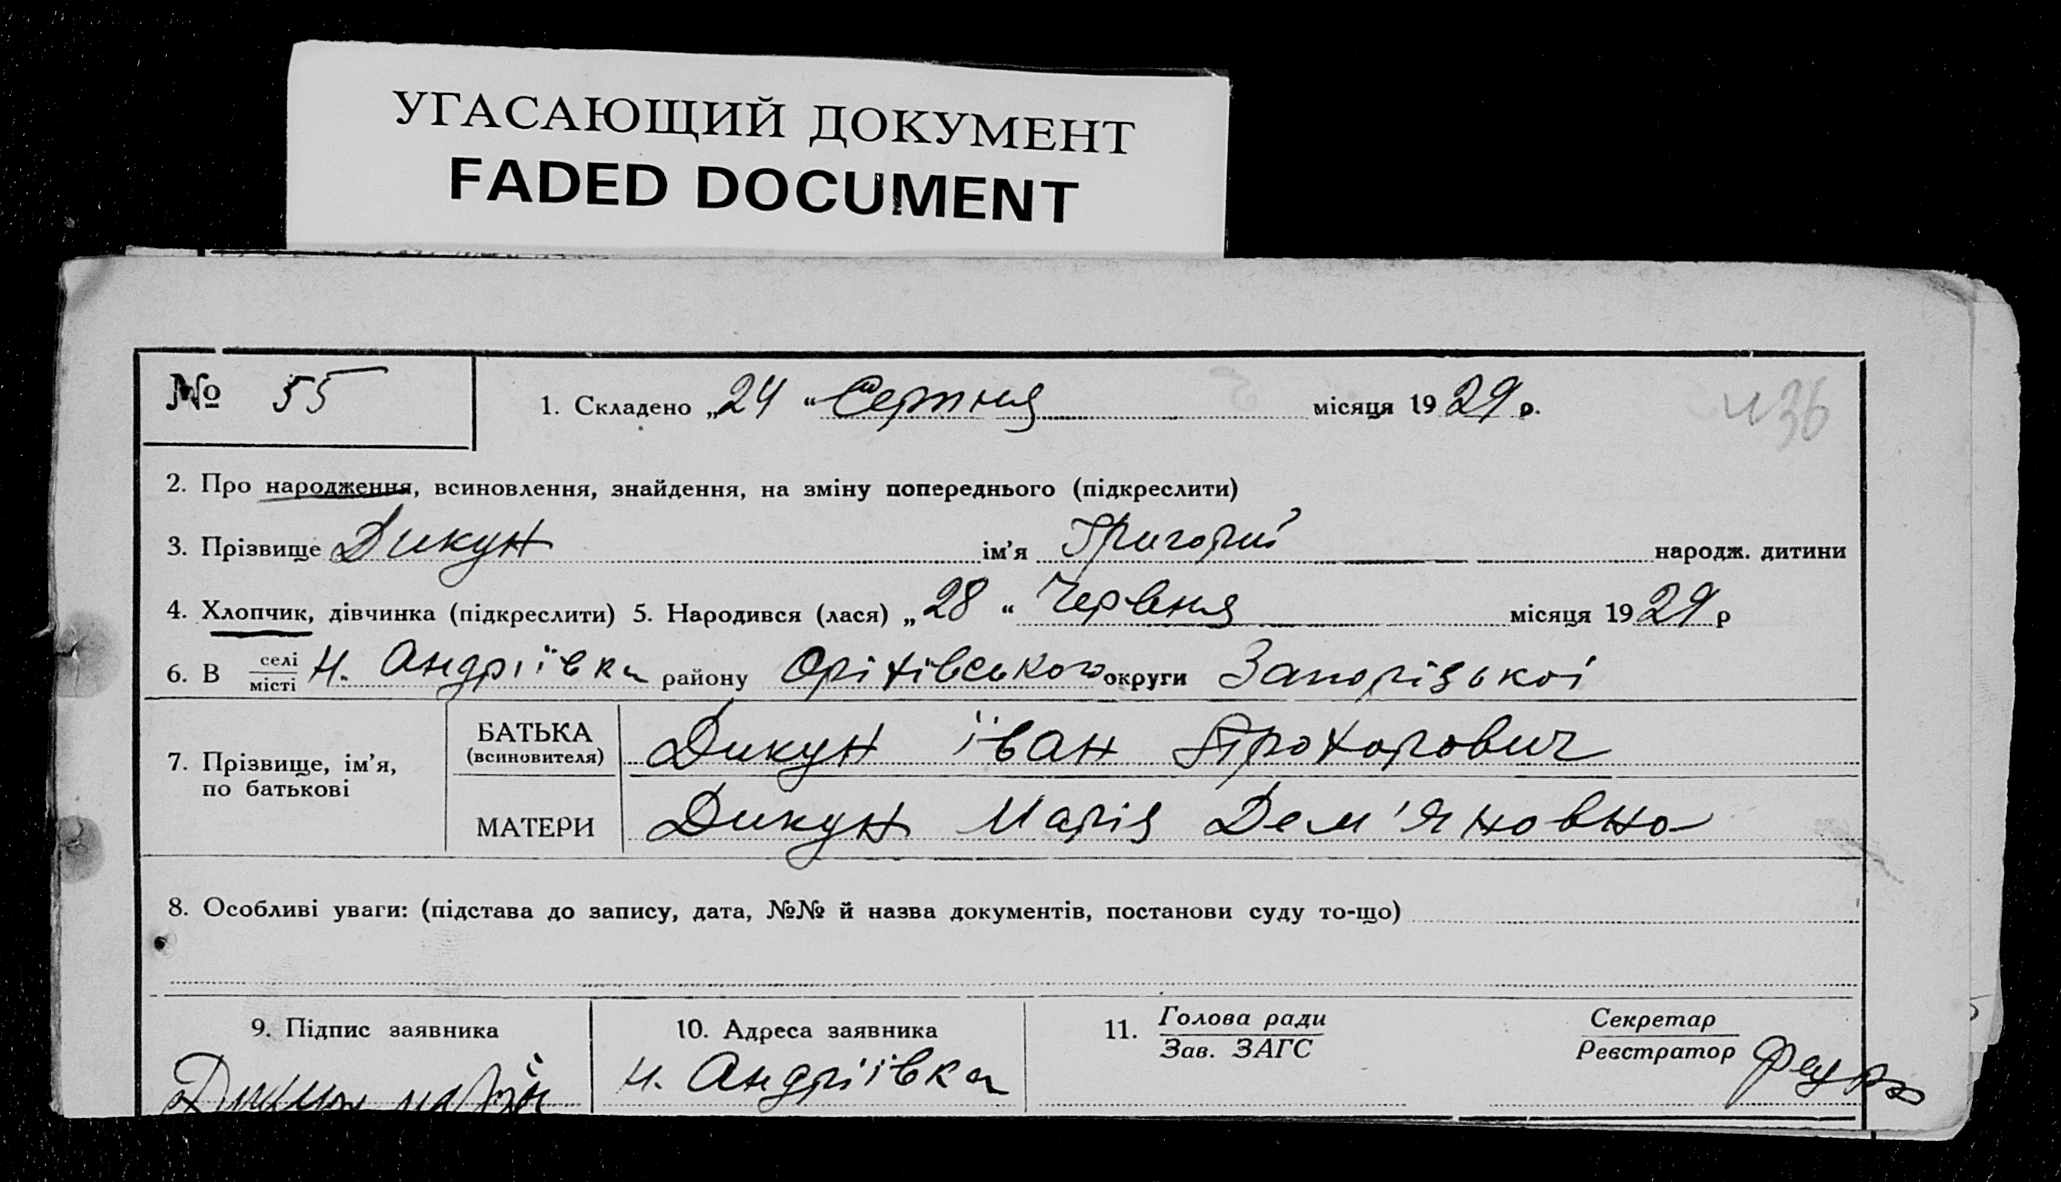 УГАСАЮЩИЙ ДОКУМЕНТ
FADED DOCUMENT
№ 55
1. Складено „24“ Серпня місяця 1929 р.
36
2. Про народження, всиновлення, знайдення, на зміну попереднього (підкреслити)
3. Прізвище Дикун ім’я Григорий народж. дитини
4. Хлопчик, дівчинка (підкреслити) 5. Народився (лася) „28“ Червня місяця 1929 р
6. В селі/місті Н. Андріївка району Оріхівського округи Запорізької
7. Прізвище, ім’я, по батькові
БАТЬКА (всиновителя) Дикун Їван Прохорович
МАТЕРИ Дикун Марія Дем'яновна
8. Особливі уваги: (підстава до запису, дата, №№ й назва документів, постанови суду то-що)
9. Підпис заявника
10. Адреса заявника
11. Голова ради
Зав. ЗАГС
Секретар
Реєстратор
Дикун
Н. Андріївка